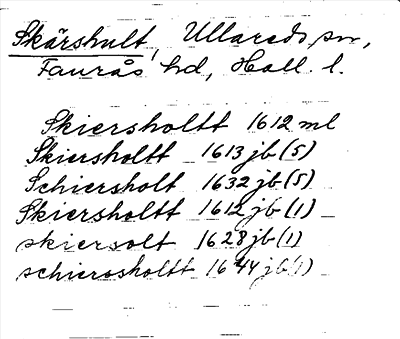 Skärshult, Ullareds sn,
Faurås hd, Hall. l.
Skiersholtt 1612 ml
Skiersholtt 1613 jb (5)
Schiersholt 1632 jb (5)
Skiersholtt 1612 jb (1)
skiersolt 1628 jb (1)
schierosholtt 1644 jb (1)